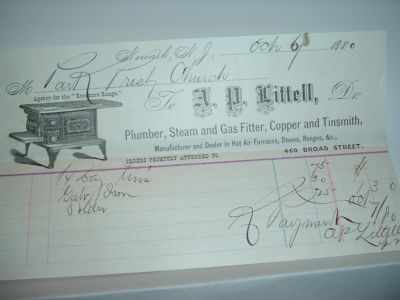 Newark, N.J., Oct 6 1880
M Park Presby Church
Agency for the "Boynton's Range,"
To A. P. Littell, Dr.
Plumber, Steam and Gas Fitter, Copper and Tinsmith,
Manufacturer and Dealer in Hot Air Furnaces, Stoves, Ranges, &c.,
ORDERS PROMPTLY ATTENDED TO. 460 BROAD STREET.
1/4 Day Time 75
Galv Iron 30
Solder 25
Payment
A P Littell